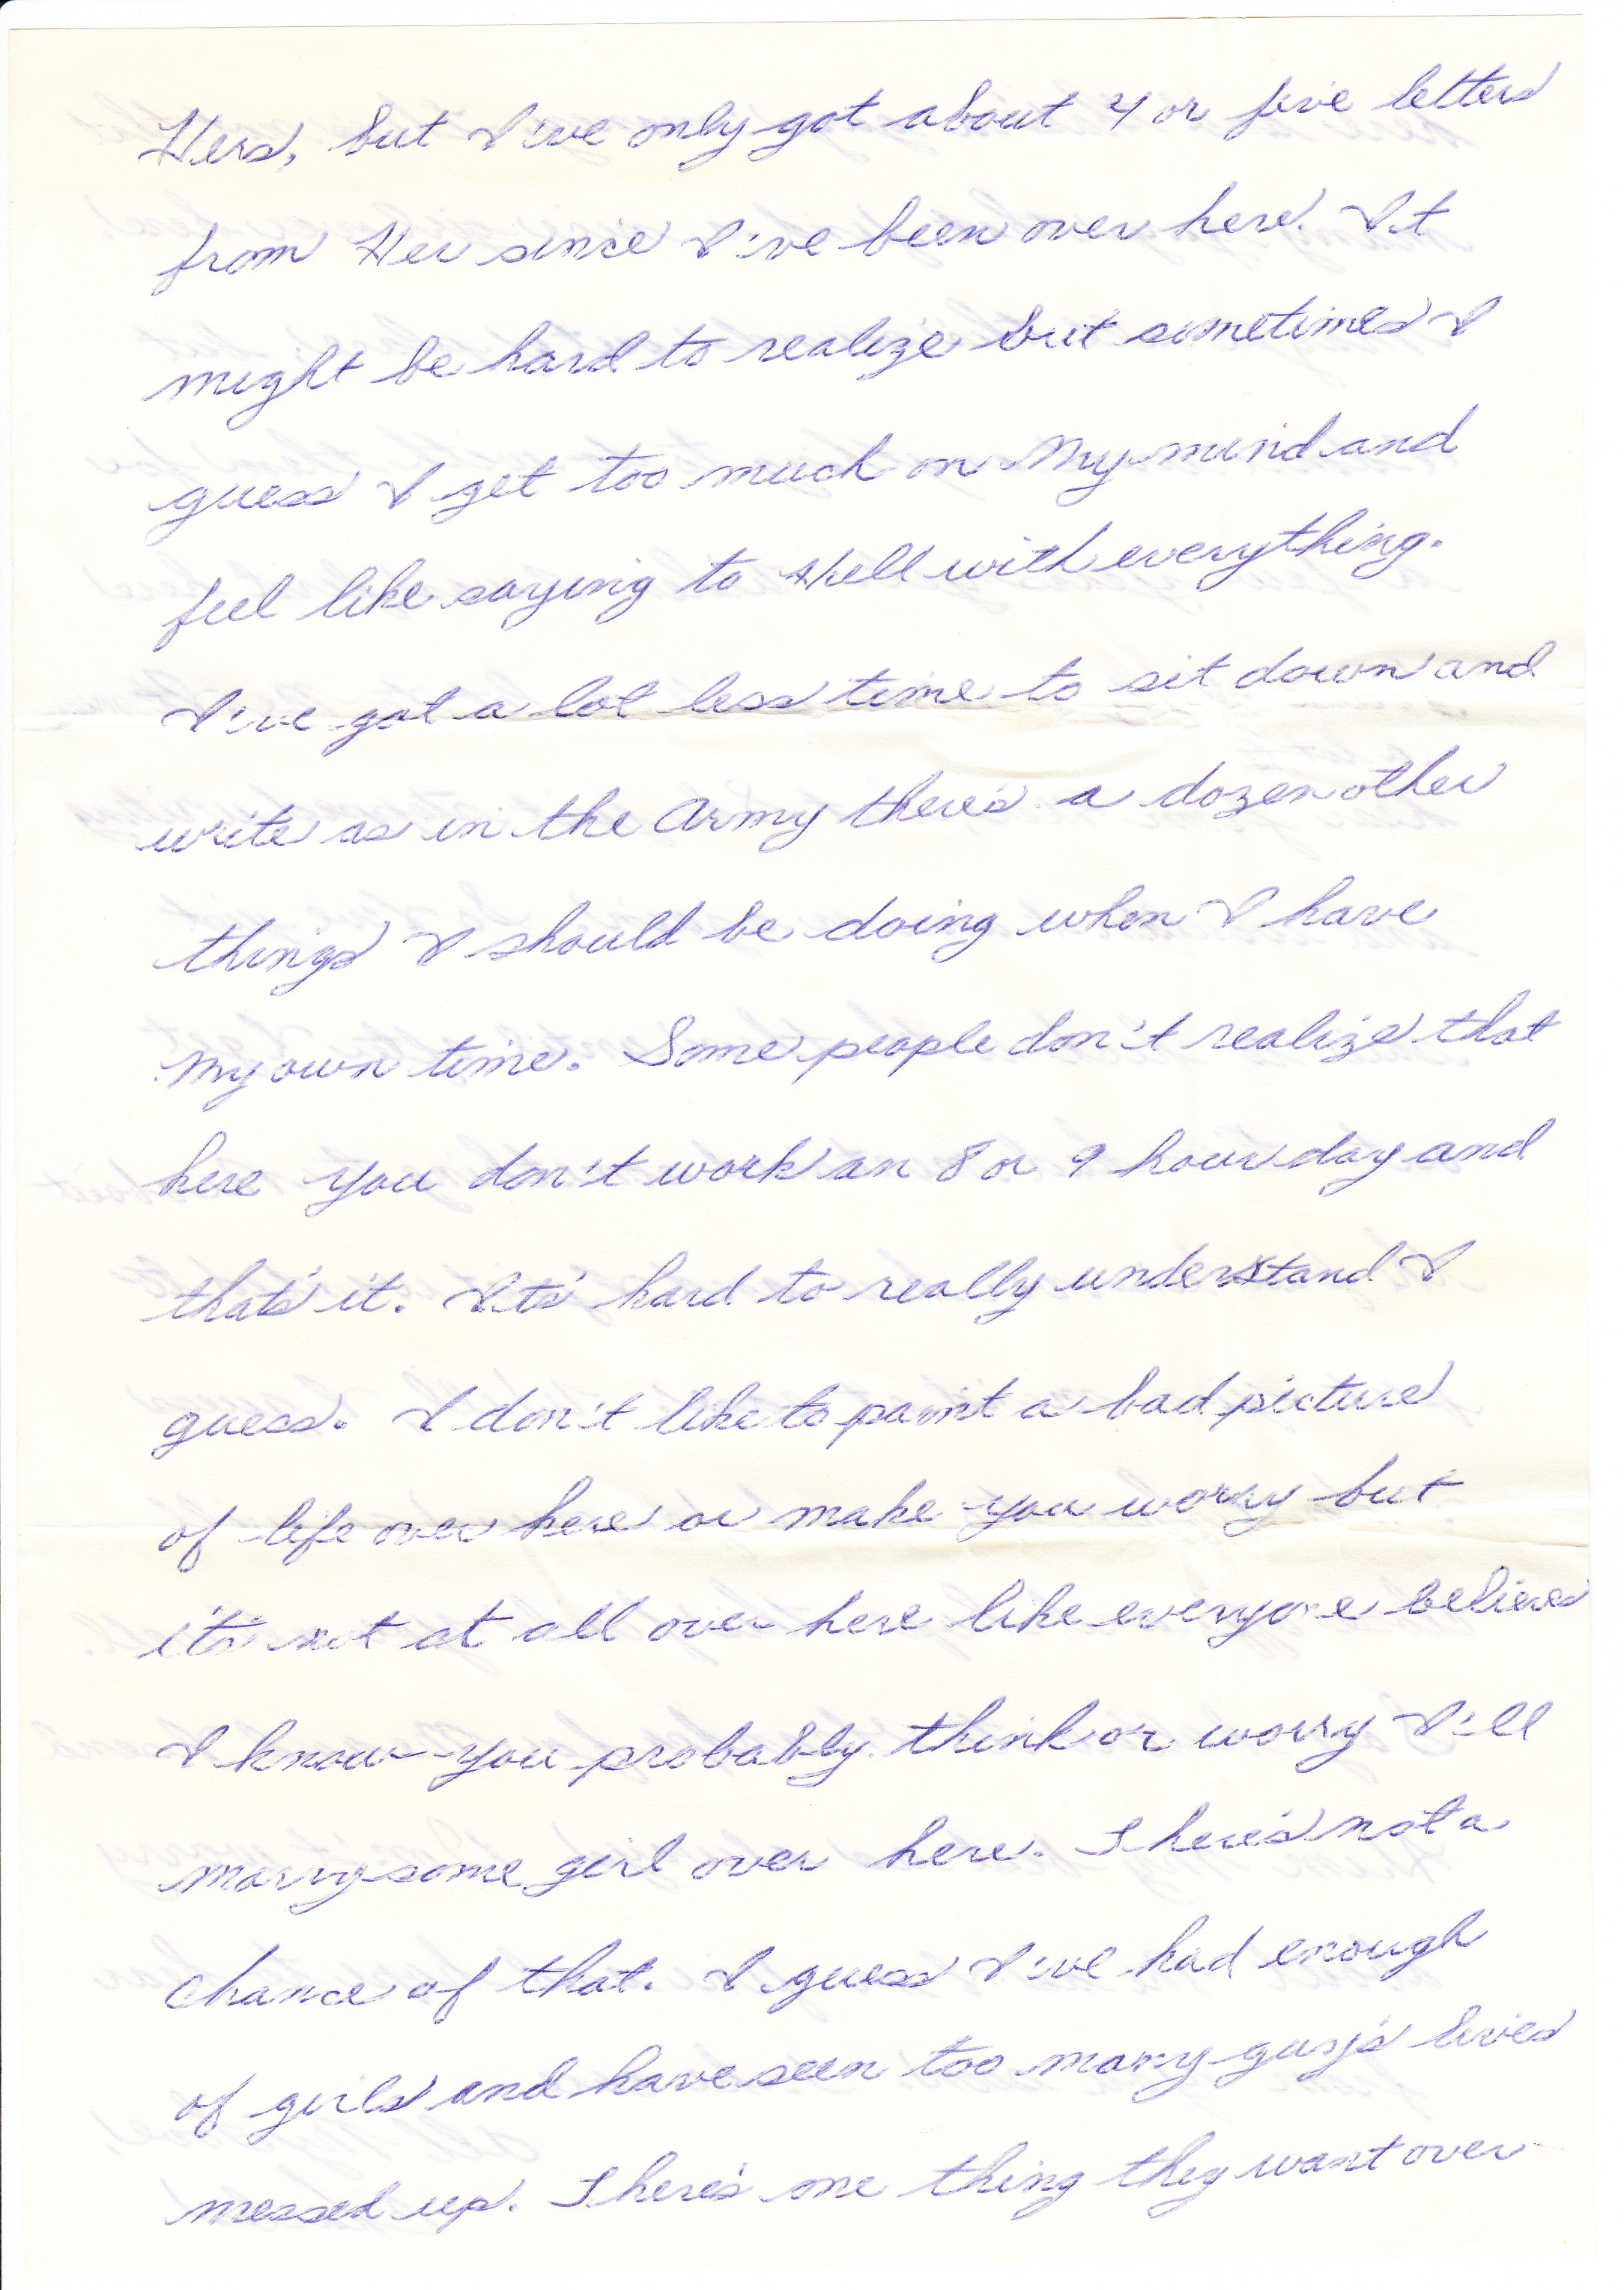 Hers, but I've only got about 4 or five letters
from Her since I've been over here. It
might be hard to realize but sometimes I
guess I get too much on My mind and
feel like saying to Hell with everything.
I've got a lot less time to sit down and
write as in the Army there's a dozen other
things I should be doing when I have
My own time. Some people don't realize that
here you don't work an 8 or 9 hour day and
that's it. It's hard to really understand I
guess. I don't like to paint a bad picture
of life over here or make you worry but
it's not at all over here like everyone believes
I know you probably think or worry I'll
marry some girl over here. There's not a
chance of that. I guess I've had enough
of girls and have seen too many guy's lives
messed up. There's one thing they want over